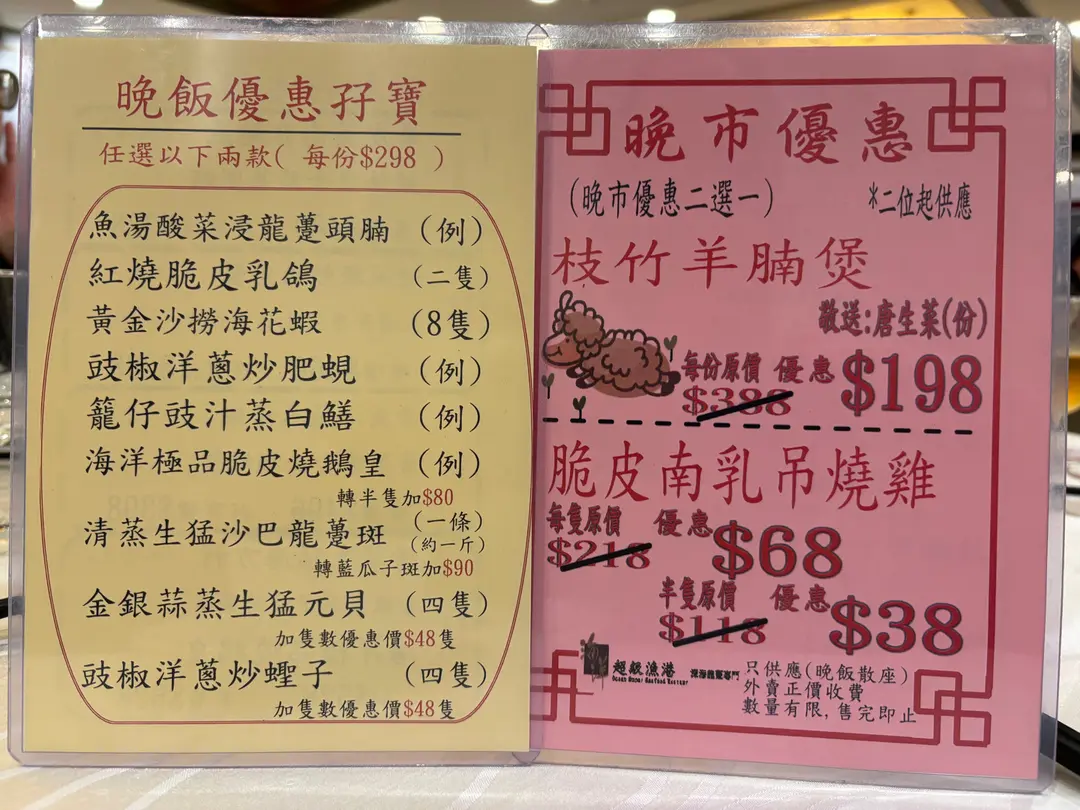 晚飯優惠孖寶
任選以下兩款( 每份$298 )
魚湯酸菜浸龍躉頭腩 (例)
紅燒脆皮乳鴿 (二隻)
黃金沙撈海花蝦 (8隻)
豉椒洋蔥炒肥蜆 (例)
籠仔豉汁蒸白鱔 (例)
海洋極品脆皮燒鵝皇 (例)
轉半隻加$80
清蒸生猛沙巴龍躉斑 (一條)
(約一斤)
轉藍瓜子斑加$90
金銀蒜蒸生猛元貝 (四隻)
加隻數優惠價$48隻
豉椒洋蔥炒蟶子 (四隻)
加隻數優惠價$48隻
晚市優惠
(晚市優惠二選一) *二位起供應
枝竹羊腩煲
敬送:唐生菜(份)
每份原價 優惠 $198
$388
脆皮南乳吊燒雞
每隻原價 優惠 $68
$218
半隻原價 優惠 $38
$118
超級漁港
只供應(晚飯散座)
外賣正價收費
數量有限, 售完即止